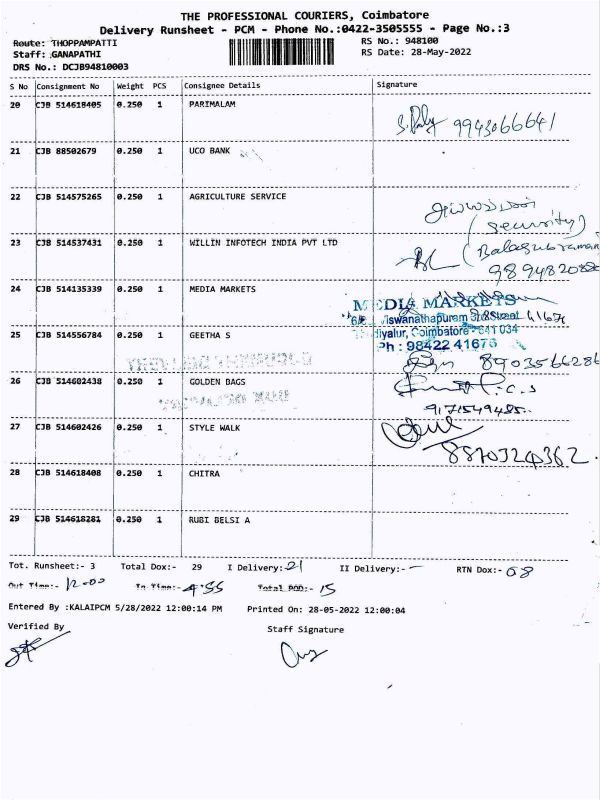 THE PROFESSIONAL COURIERS, Coimbatore
Delivery Runsheet - PCM - Phone No.:0422-3505555 - Page No.:3
Route: THOPPAMPATTI RS No.: 948100
Staff: GANAPATHI RS Date: 28-May-2022
DRS No.: DCJB94810003
S No Consignment No Weight PCS Consignee Details Signature
20 CJB 514618405 0.250 1 PARIMALAM
9943066641
21 CJB 88502679 0.250 1 UCO BANK
22 CJB 514575265 0.250 1 AGRICULTURE SERVICE
(Security)
23 CJB 514537431 0.250 1 WILLIN INFOTECH INDIA PVT LTD
(Balasubraman
24 CJB 514135339 0.250 1 MEDIA MARKETS
MEDIA MARKETS
Coimbatore - 641 034
Ph : 98422 41676
25 CJB 514556784 0.250 1 GEETHA S
8903566286
26 CJB 514602438 0.250 1 GOLDEN BAGS
9171549485
27 CJB 514602426 0.250 1 STYLE WALK
8870324362
28 CJB 514618408 0.250 1 CHITRA
29 CJB 514618281 0.250 1 RUBI BELSI A
Tot. Runsheet:- 3 Total Dox:- 29 I Delivery:- 21 II Delivery:- - RTN Dox:- 08
Out Time:- 12.00 In Time:- 4.55 Total POD:- 15
Entered By :KALAIPCM 5/28/2022 12:00:14 PM Printed On: 28-05-2022 12:00:04
Verified By Staff Signature